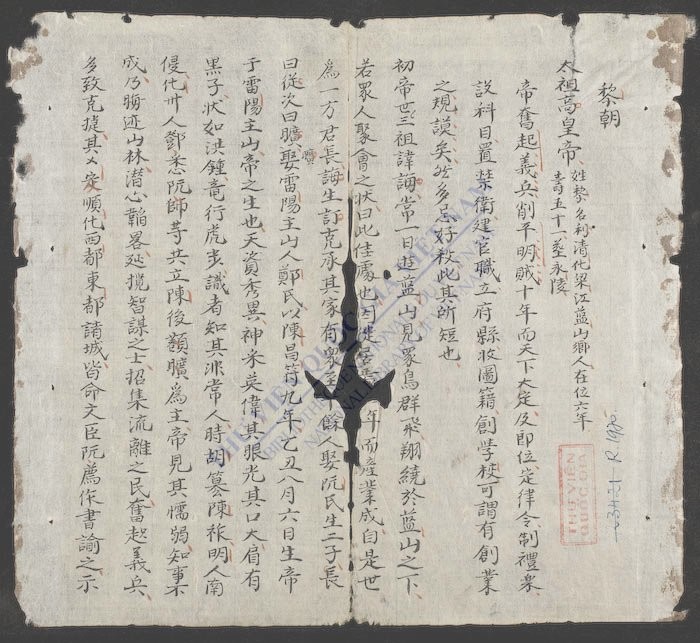 黎朝
太祖高皇帝 姓黎名利清化梁江藍山鄉人在位六年
壽五十一葬永陵
帝奮起義兵削平明賊十年而天下大定及即位定律令制禮樂
設科目置禁衛建官職立府縣收圖籍創學校可謂有創業
之規謨矣然多忌好殺此其所短也
初帝世三祖諱誨常一日遊藍山見眾鳥群飛翔繞於藍山之下
若眾人聚會之狀曰此佳處也因徙居 年而產業成自是世
為一方君長誨生訂克承其家有眾至千餘人娶阮氏生二子長
曰從次曰曠曠娶雷陽主山人鄭氏以陳昌符九年乙丑八月六日生帝
于雷陽主山帝之生也天資秀異神采英偉其眼光其口大肩有
黑子狀如洪鍾竜行虎步識者知其非常人時胡篡陳祚明人南
侵化州人鄧悉阮師等共立陳後頟曠為主帝見其懦弱知事不
成乃晦迹山林潛心韜畧延攬智謀之士招集流離之民奮起義兵
多致克捷其 定順化西都東都諸城皆命文臣阮薦作書諭之示
THƯ VIỆN
QUỐC GIA
THƯ VIỆN QUỐC GIA VIỆT NAM